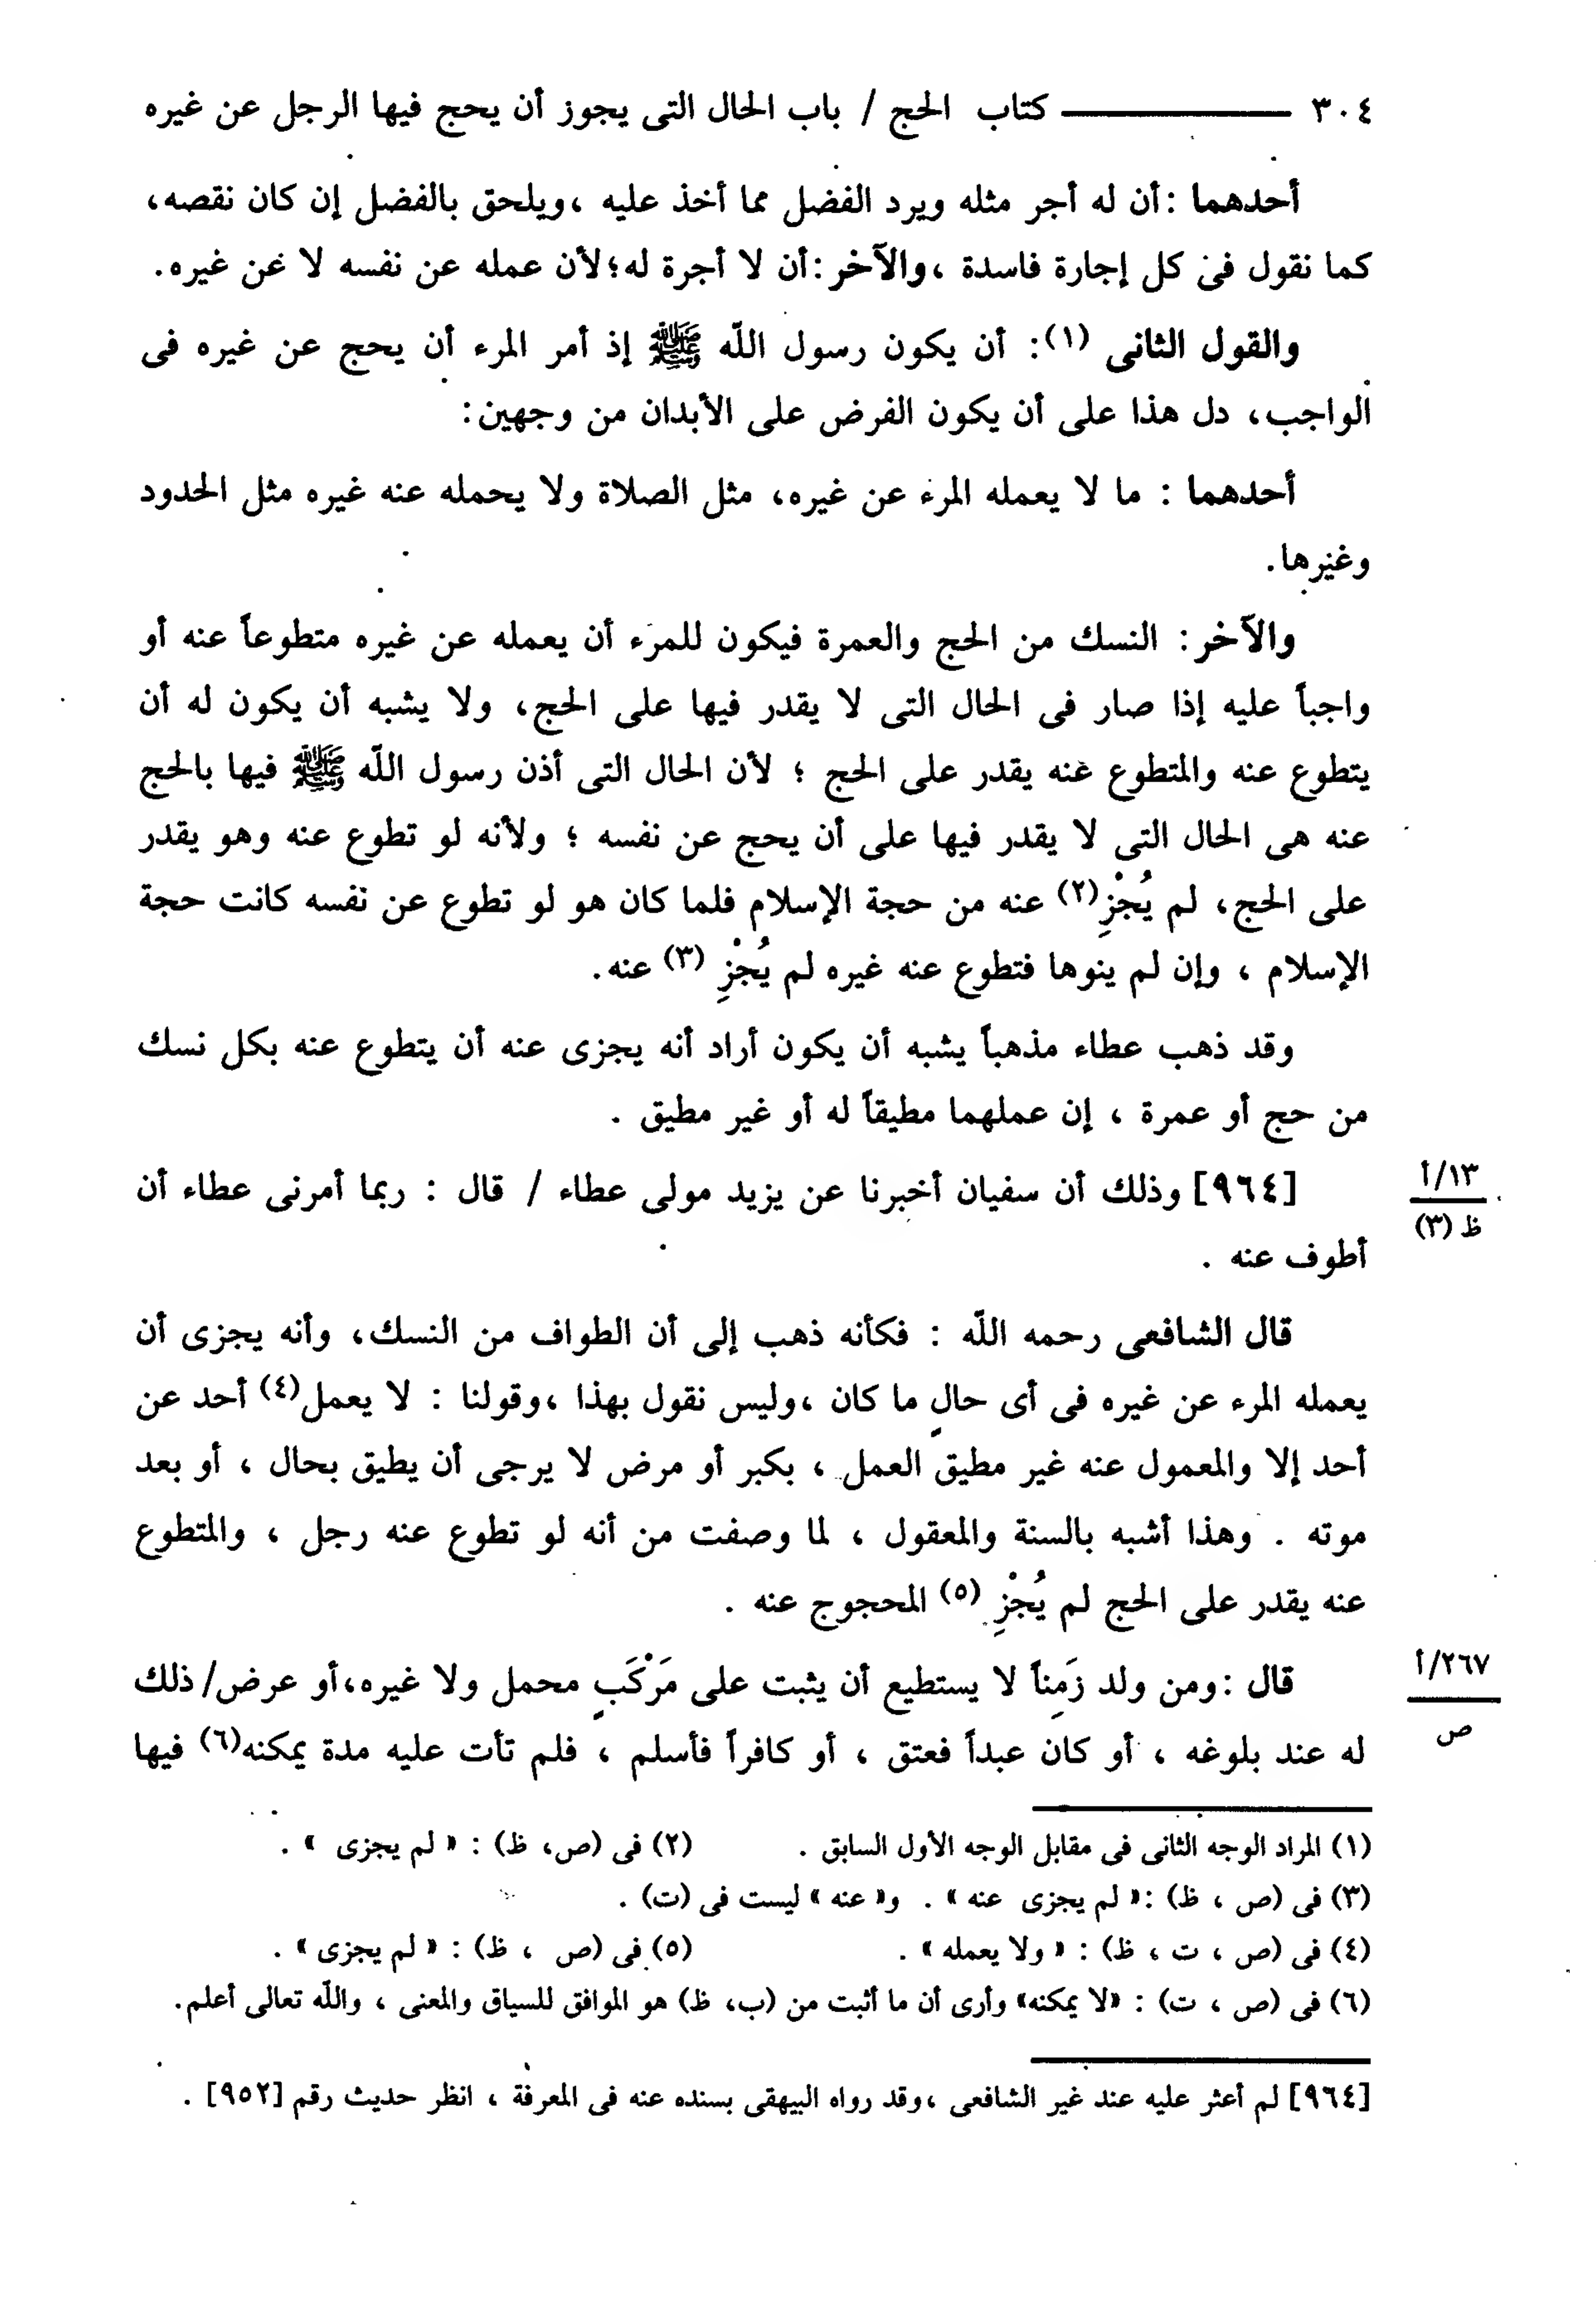 ٣٠٤ ــــــــــــ كتاب الحج / باب الحال التى يجوز أن يحج فيها الرجل عن غيره
أحدهما : أن له أجر مثله ويرد الفضل مما أخذ عليه ، ويلحق بالفضل إن كان نقصه،
كما نقول فى كل إجارة فاسدة ، والآخر : أن لا أجرة له ؛ لأن عمله عن نفسه لا عن غيره.
والقول الثانى (١) : أن يكون رسول اللّه ﷺ إذ أمر المرء أن يحج عن غيره فى
الواجب، دل هذا على أن يكون الفرض على الأبدان من وجهين:
أحدهما : ما لا يعمله المرء عن غيره، مثل الصلاة ولا يحمله عنه غيره مثل الحدود
وغيرها.
والآخر : النسك من الحج والعمرة فيكون للمرء أن يعمله عن غيره متطوعاً عنه أو
واجباً عليه إذا صار فى الحال التى لا يقدر فيها على الحج، ولا يشبه أن يكون له أن
يتطوع عنه والمتطوع عنه يقدر على الحج ؛ لأن الحال التى أذن رسول اللّه ﷺ فيها بالحج
عنه هى الحال التى لا يقدر فيها على أن يحج عن نفسه ؛ ولأنه لو تطوع عنه وهو يقدر
على الحج، لم يُجْزِ(٢) عنه من حجة الإسلام فلما كان هو لو تطوع عن نفسه كانت حجة
الإسلام ، وإن لم ينوها فتطوع عنه غيره لم يُجْزِ (٣) عنه.
وقد ذهب عطاء مذهباً يشبه أن يكون أراد أنه يجزى عنه أن يتطوع عنه بكل نسك
من حج أو عمرة ، إن عملهما مطيقاً له أو غير مطيق .
١٣/أ
ظ (٣)
[٩٦٤] وذلك أن سفيان أخبرنا عن يزيد مولى عطاء / قال : ربما أمرنى عطاء أن
أطوف عنه .
قال الشافعى رحمه اللّه : فكأنه ذهب إلى أن الطواف من النسك، وأنه يجزى أن
يعمله المرء عن غيره فى أى حالٍ ما كان ، وليس نقول بهذا ، وقولنا : لا يعمل(٤) أحد عن
أحد إلا والمعمول عنه غير مطيق العمل ، بكبر أو مرض لا يرجى أن يطيق بحال ، أو بعد
موته . وهذا أشبه بالسنة والمعقول ، لما وصفت من أنه لو تطوع عنه رجل ، والمتطوع
عنه يقدر على الحج لم يُجْزِ (٥) المحجوج عنه .
٢٦٧/أ
ص
قال : ومن ولد زَمِناً لا يستطيع أن يثبت على مَرْكَبٍ محمل ولا غيره، أو عرض/ ذلك
له عند بلوغه ، أو كان عبداً فعتق ، أو كافراً فأسلم ، فلم تأت عليه مدة يمكنه(٦) فيها
(١) المراد الوجه الثانى فى مقابل الوجه الأول السابق . (٢) فى (ص، ظ) : « لم يجزى » .
(٣) فى (ص ، ظ) : « لم يجزى عنه » . و« عنه » ليست فى (ت) .
(٤) فى (ص ، ت ، ظ) : « ولا يعمله » . (٥) فى (ص ، ظ) : « لم يجزى » .
(٦) فى (ص ، ت) : «لا يمكنه» وأرى أن ما أثبت من (ب، ظ) هو الموافق للسياق والمعنى ، واللّه تعالى أعلم.
[٩٦٤] لم أعثر عليه عند غير الشافعى ، وقد رواه البيهقى بسنده عنه فى المعرفة ، انظر حديث رقم [٩٥٢] .